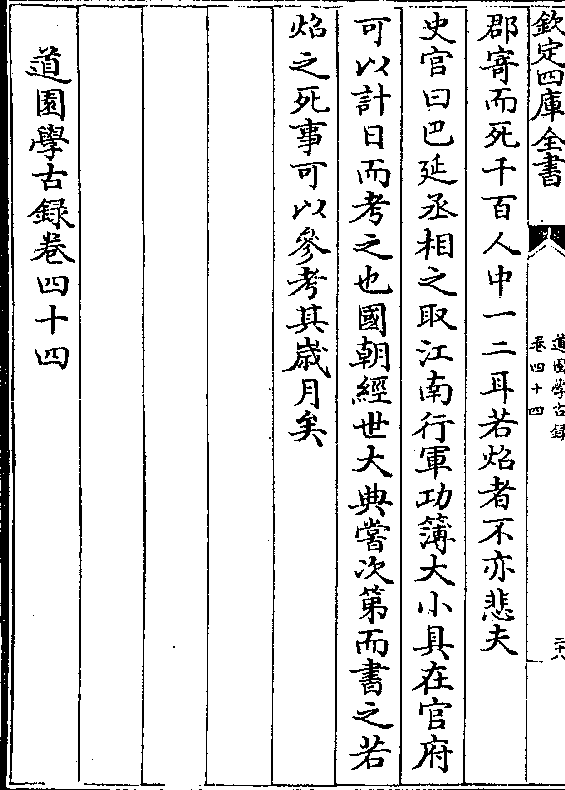 欽定四庫全書
道園學古録
卷四十四
二十八
郡寄而死千百人中一二耳若焰者不亦悲夫
史官曰巴延丞相之取江南行軍功簿大小具在官府
可以計日而考之也國朝經世大典嘗次第而書之若
焰之死事可以參考其歲月矣
道園學古録卷四十四